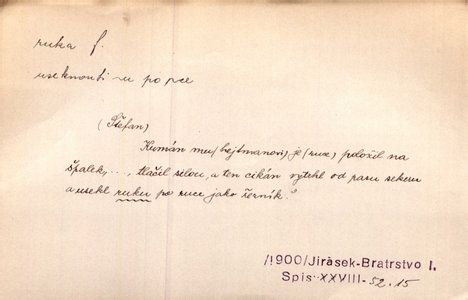 ruka f.
useknouti ~u po pce
(Štefan)
Kumán mu (hejtmanovi) je (ruce) položil na
špalek, ..., tlačil silou, a ten cikán vytrhl od pasu sekeru
a usekl ruku po ruce jako řezník."
/1900/Jirásek-Bratrstvo I.
Spis XXVIII-52.15